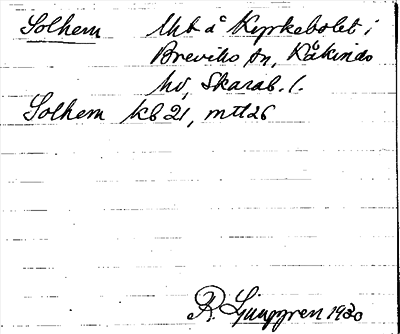 Solhem Utb å Kyrkebolet i
Breviks sn, Kåkinds
hd, Skarab. l.
Solhem kb 21, mtl 26
R. Ljunggren 1930